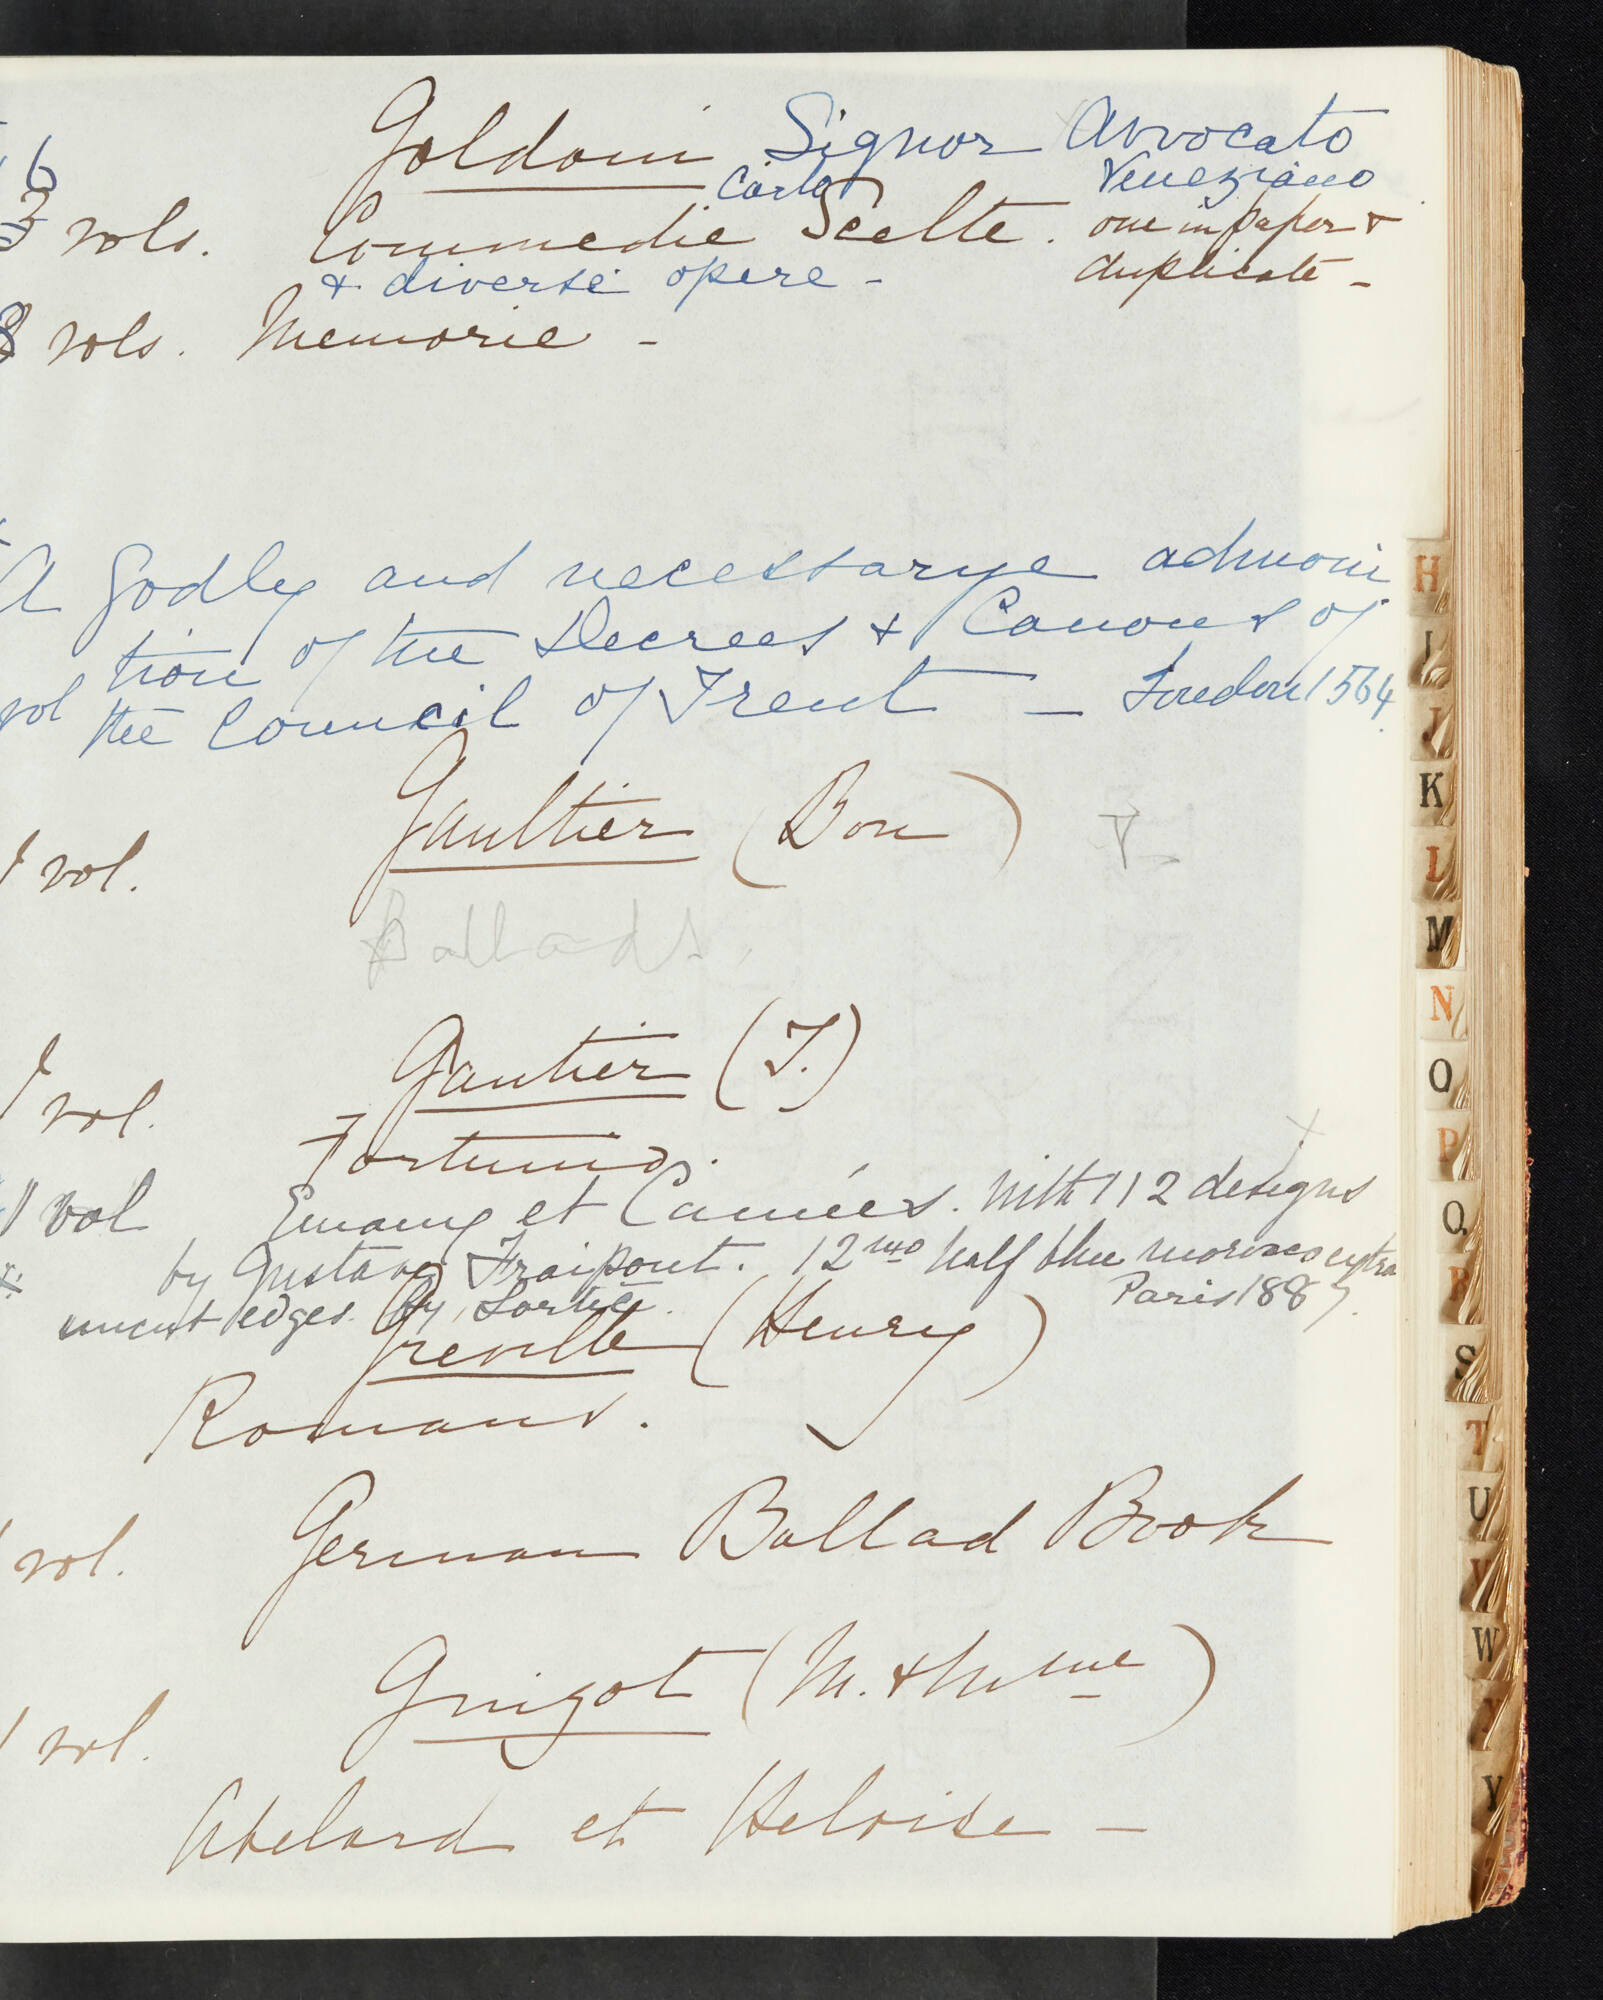 Goldoni Signor Avvocato
Carlo Veneziano
6
3 vols. Commedie Scelte. one in paper &
& diverse opere - duplicate -
8 vols. Memorie -
A Godly and necessarye admoni
tion of the Decrees & Canons of
vol the Council of Trent - London 1564
Gaultier (Bon)
1 vol.
Ballads.
Gautier (T.)
1 vol.
Fortunio.
1 vol Emaux et Camées. With 112 designs
by Gustave Fraipont. 12mo half blue morocco extra
uncut edges. By Lortic. Paris 1887.
Greville (Henry)
Romans.
German Ballad Book
vol.
Guizot (M. & Mme)
1 vol.
Abelard et Heloise -
H
I
J
K
L
M
N
O
P
Q
R
S
T
U
V
W
X
Y